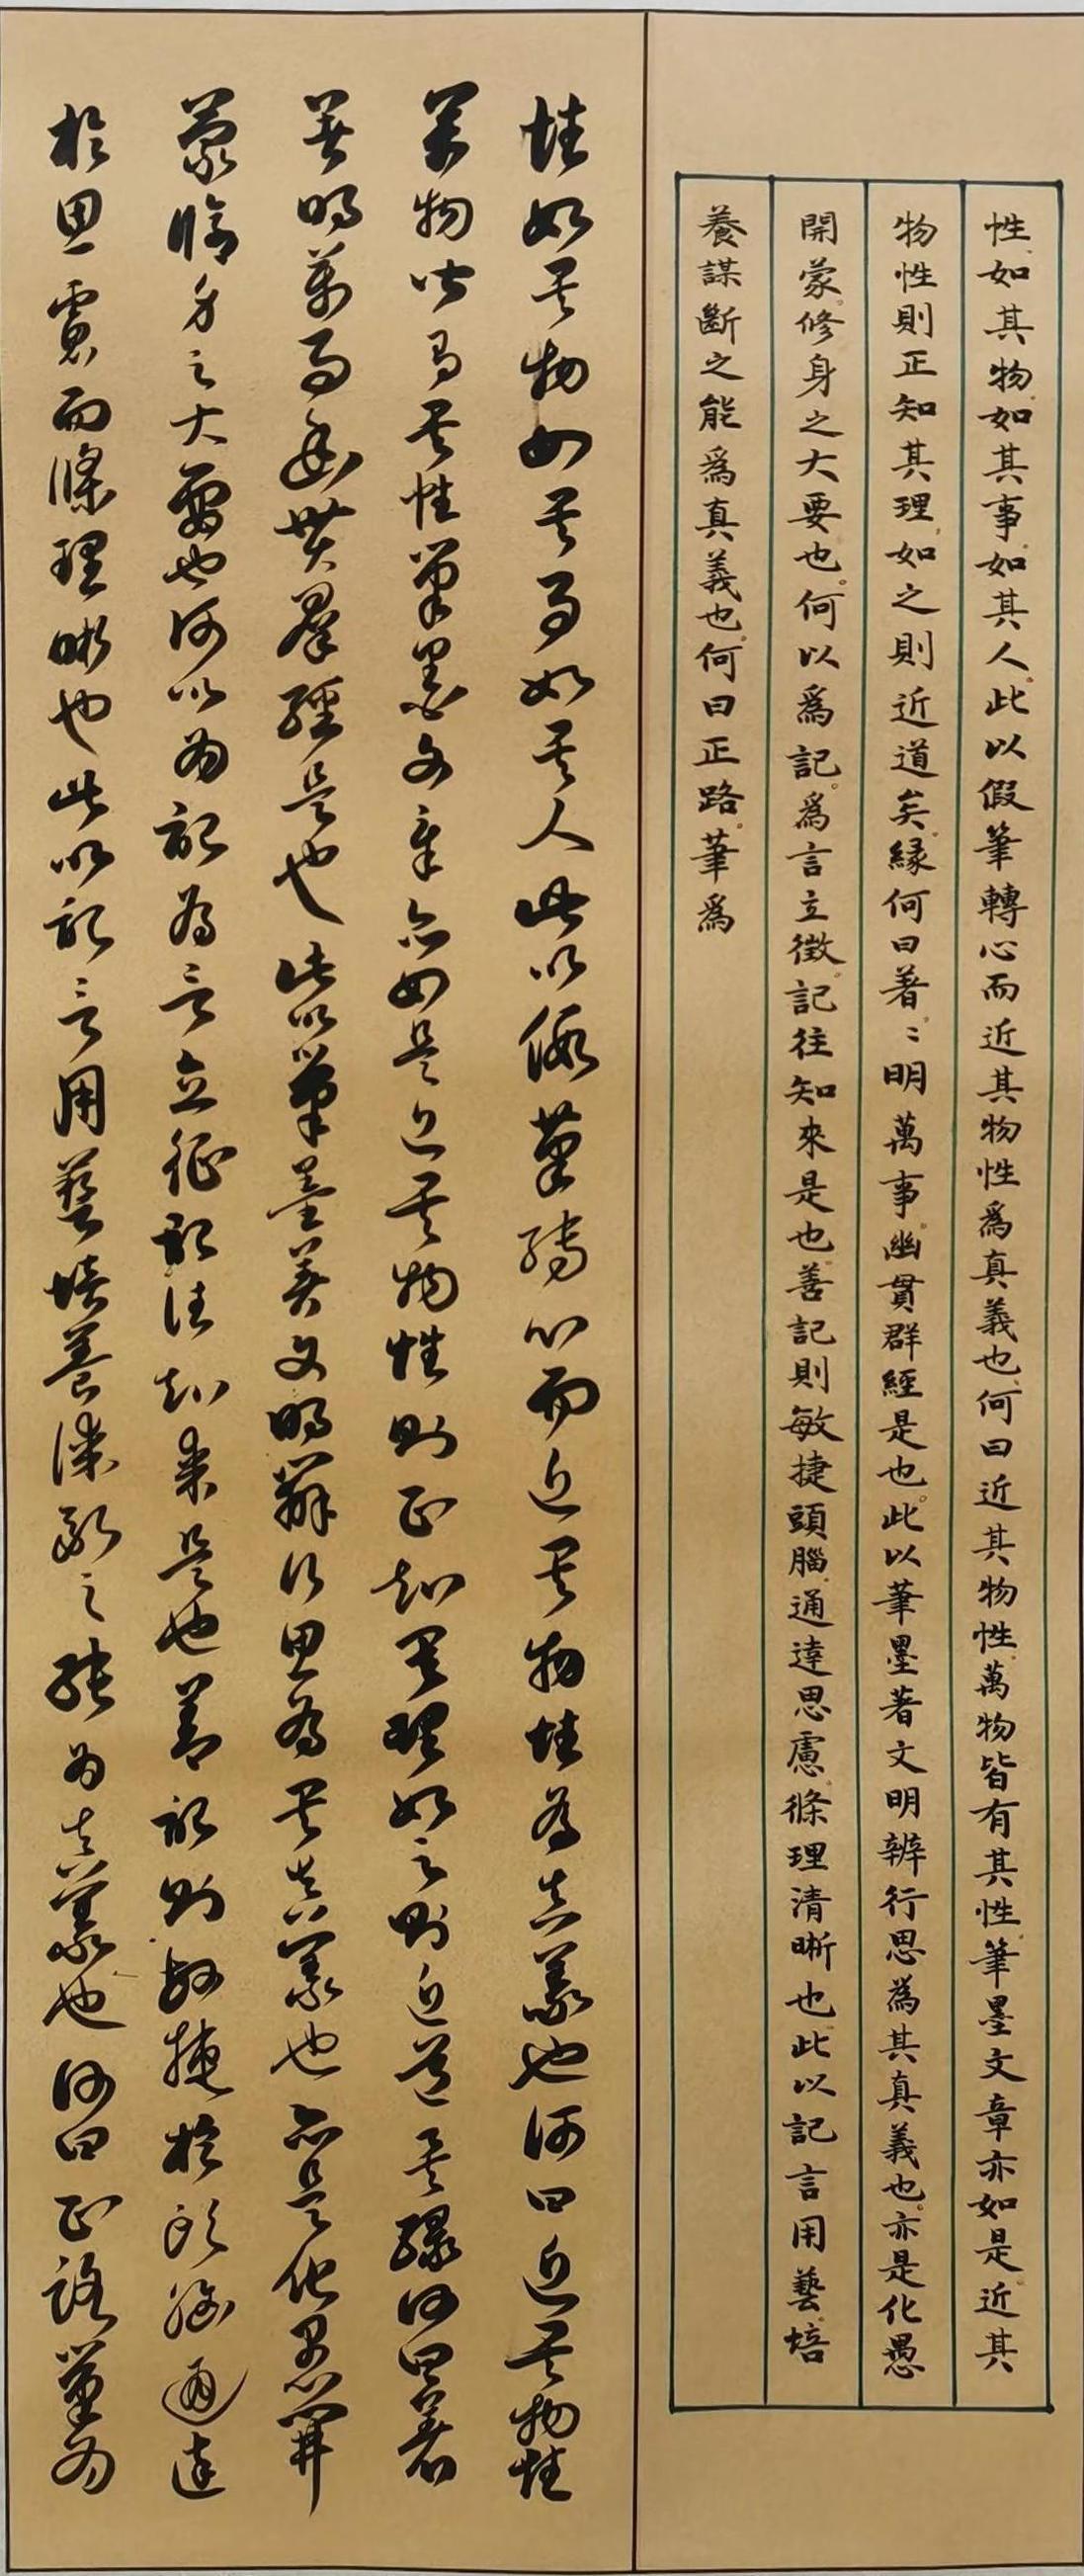 性如其物如其事如其人此以假筆轉心而近其物性爲真義也何曰近其物性萬物皆有其性筆墨文章亦如是近其
物性則正知其理如之則近道矣緣何曰著〻明萬事幽貫群經是也此以筆墨著文明辨行思為其真義也亦是化愚
開蒙修身之大要也何以爲記爲言立徵記往知來是也善記則敏捷頭腦通達思慮條理清晰也此以記言用藝培
養謀斷之能爲真義也何曰正路筆爲
性如其物如其事如其人此以假筆轉心而近其物性為真義也何曰近其物性
萬物皆有其性筆墨文章亦如是近其物性則正知其理如之則近道矣緣何曰著
著明萬事幽貫群經是也此以筆墨著文明辨行思為其真義也亦是化愚開
蒙修身之大要也何以為記為言立徵記往知來是也善記則敏捷於頭腦通達
於思慮而條理晰也此以記言用藝培養謀斷之能為真義也何曰正路筆為